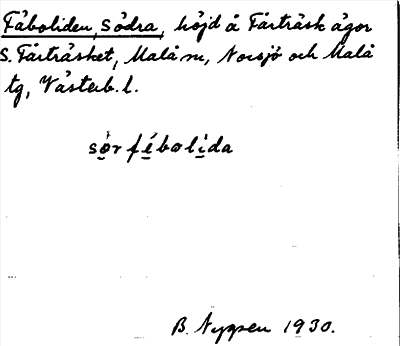 Fåboliden, Södra, höjd å Fårträsk ägor
S. Fårträsket, Malå sn, Norsjö och Malå
tg, Västerb. l.
sørfébolida
B. Nygren 1930.